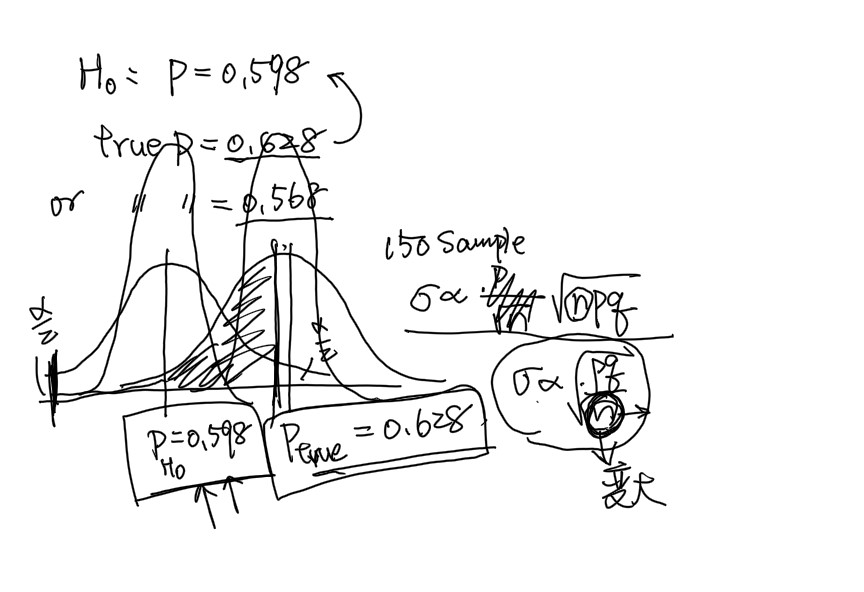 H₀ = P = 0.598
true p = 0.628
or 〃 〃 = 0.568
150 Sample
σ ∝ √npq
α/2
α/2
σ ∝ √pq/n
P H₀ = 0.598
P true = 0.628
變大